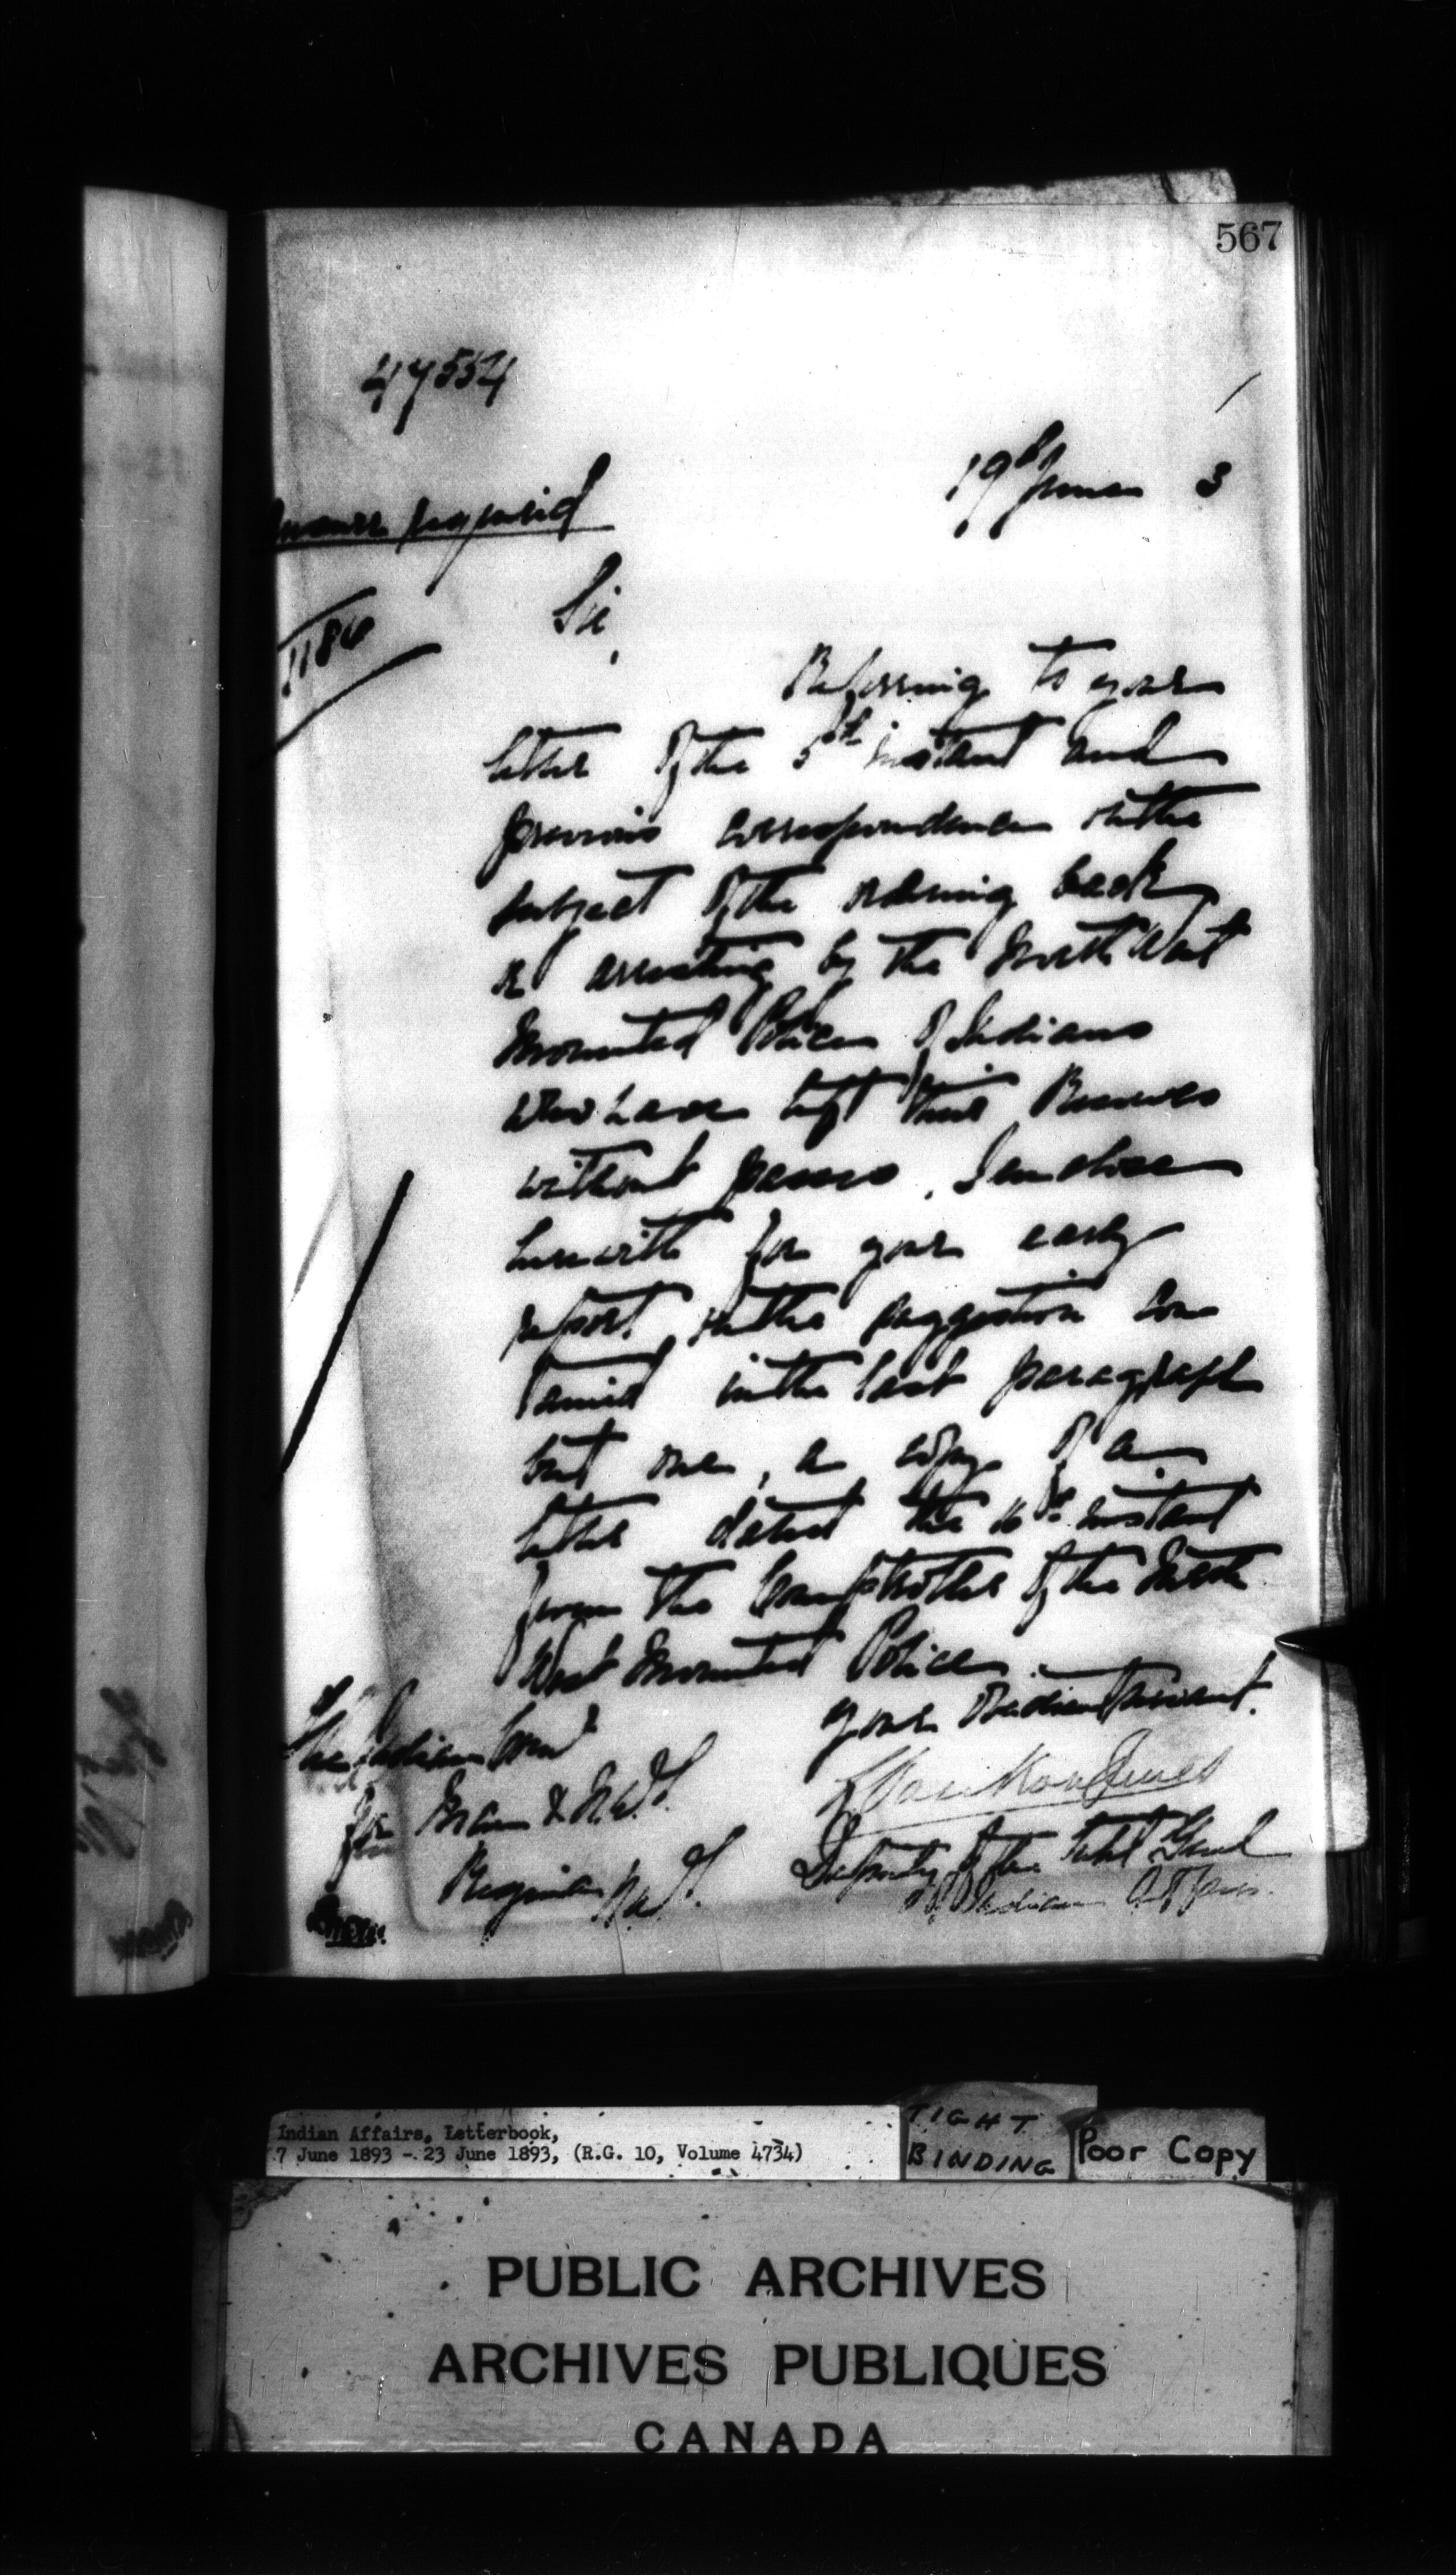 567
47554
19th June 3
Answer required
1186
Sir,
Referring to your
letter of the 5th instant and
previous correspondence on the
subject of the ordering back
or arresting by the North West
Mounted Police of Indians
who have left their Reserves
without passes, I enclose
herewith for your early
report, on the suggestion con
tained in the last paragraph
but one, a copy of a
letter dated the 10th instant
from the Comptroller of the North
West Mounted Police.
Your obedient servant.
L Vankoughnet
Deputy of the Supt Genl
of Indian Affairs.
The Indian Comr
for Man & N.W.T.
Regina N.W.T.
Indian Affairs, Letterbook,
7 June 1893 - 23 June 1893, (R.G. 10, Volume 4734)
TIGHT
BINDING
Poor Copy
PUBLIC ARCHIVES
ARCHIVES PUBLIQUES
CANADA